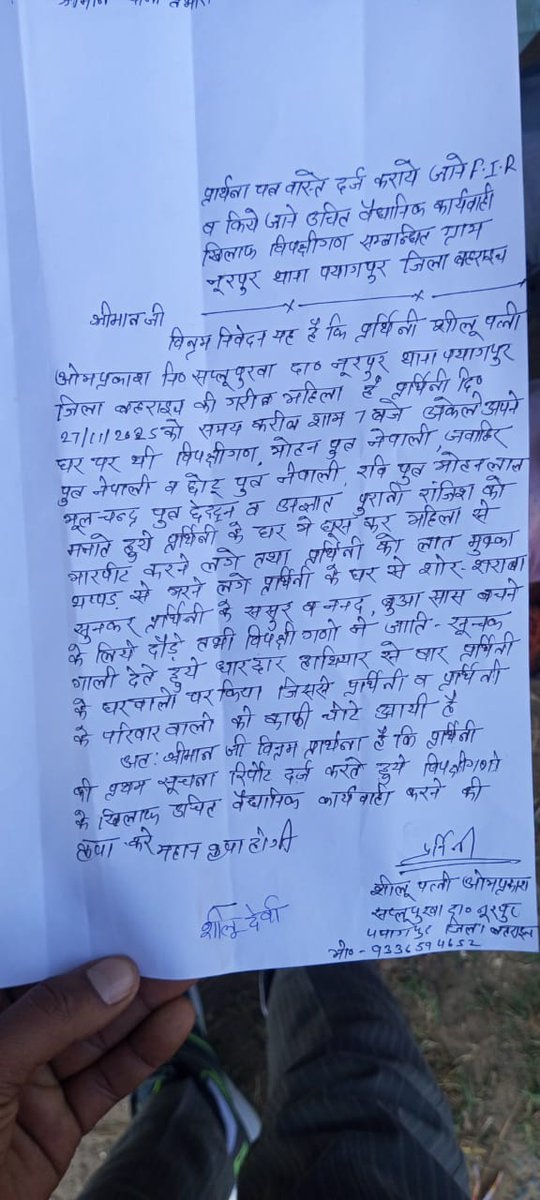 श्रीमान थाना प्रभारी
प्रार्थना पत्र वास्ते दर्ज कराये जाने F.I.R
व किये जाने उचित वैधानिक कार्यवाही
खिलाफ विपक्षीगण सम्बन्धित ग्राम
नूरपुर थाना पयागपुर जिला बहराइच
श्रीमान जी
विनम्र निवेदन यह है कि प्रार्थिनी शीलू पत्नी
ओमप्रकाश नि० सप्लूपुरवा दा० नूरपुर थाना पयागपुर
जिला बहराइच की गरीब महिला है प्रार्थिनी दि०
27/11/2025 को समय करीब शाम 7 बजे अकेले अपने
घर पर थी विपक्षीगण, मोहन पुत्र नेपाली, जवाहिर
पुत्र नेपाली व छोटू पुत्र नेपाली, रवि पुत्र मोहनलाल
मूलचन्द्र पुत्र देद्दन व अज्ञात पुरानी रंजिश को
मनाते हुये प्रार्थिनी के घर में घूस कर महिला से
मारपीट करने लगे तथा प्रार्थिनी को लात मुक्का
थप्पड़ से मरने लगे प्रार्थिनी के घर से शोर-शराबा
सुनकर प्रार्थिनी के ससुर व ननद, बुआ सास बचने
के लिये दौड़े तभी विपक्षी गणो ने जाति-सूचक
गाली देते हुये धारदार हाथियार से वार प्रार्थिनी
के घरवालो पर किया जिससे प्रार्थिनी व प्रार्थिनी
के परिवार वालो को काफी चोटे आयी है
अतः श्रीमान जी विनम्र प्रार्थना है कि प्रार्थिनी
की प्रथम सूचना रिपोर्ट दर्ज करते हुये विपक्षीगणो
के खिलाफ उचित वैधानिक कार्यवाही करने की
कृपा करे महान कृपा होगी
प्रार्थिनी
शीलू पत्नी ओमप्रकाश
सप्लूपुरवा दा० नूरपुर
पयागपुर जिला बहराइच
मो०- 9336594652
शीलू देवी